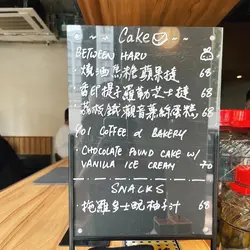 ~ Cake ~
BETWEEN HARU
· 燒酒黑糖蘋果撻 68
· 香印提子羅勒芝士撻 68
· 荔枝鐵觀音葉絲蛋糕 68
001 COFFEE & BAKERY
· CHOCOLATE POUND CAKE W/
VANILLA ICE CREAM 70
SNACKS
· 拖羅多士 柚子汁 68